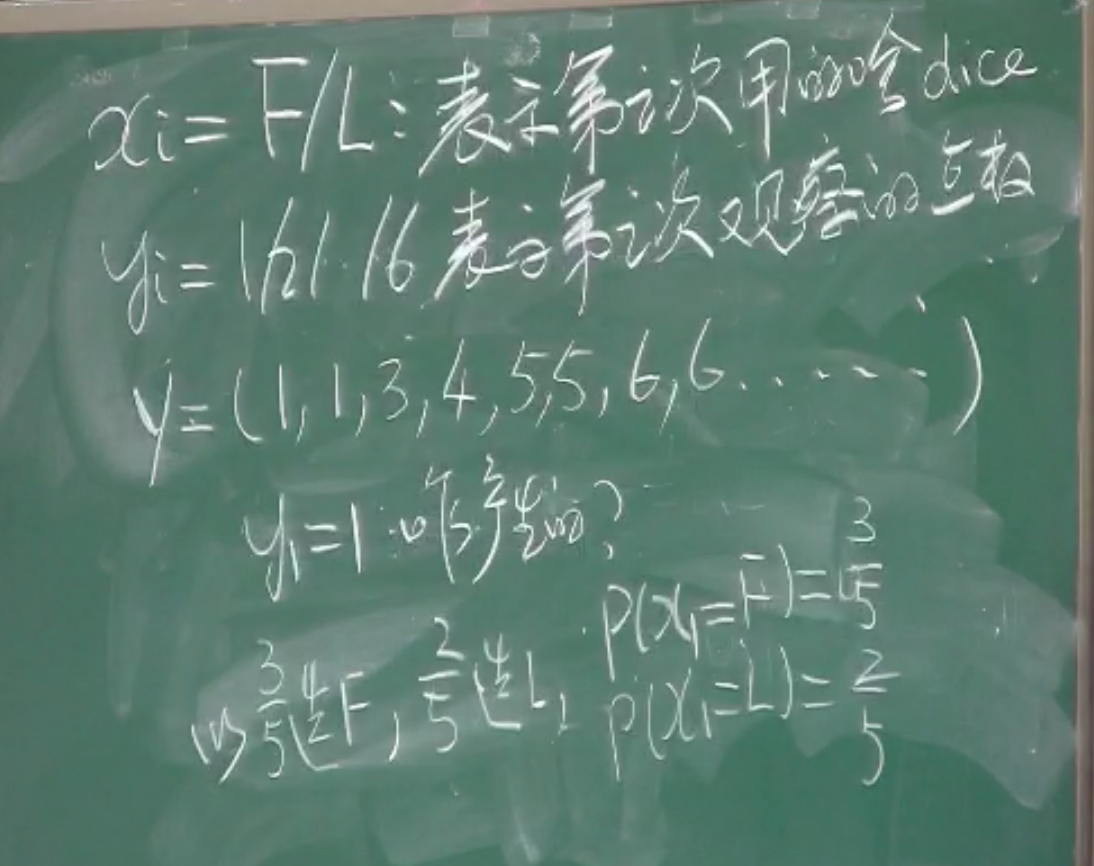 xi = F/L : 表示第i次用的啥dice
yi = 1/2/../6 表示第i次观察的点数
y = (1, 1, 3, 4, 5, 5, 6, 6 . . . . . . )
y₁ = 1 咋产生的?
以 3/5 选F, 2/5 选L, P(x₁ = F) = 3/5
P(x₁ = L) = 2/5